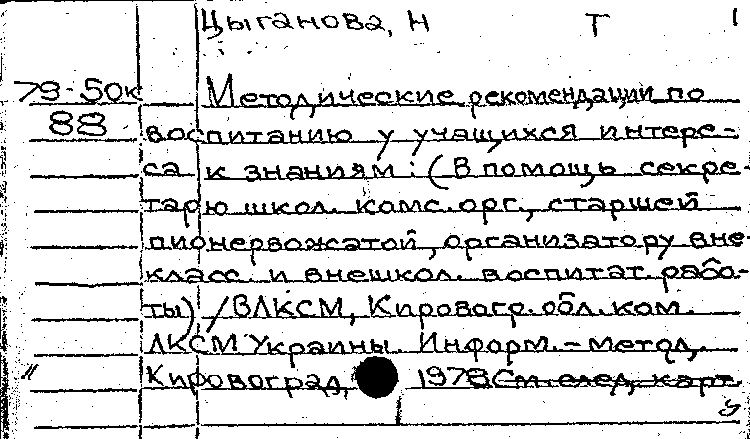 Цыганова, Н Т 1
79-50к Методические рекомендации по
88 воспитанию у учащихся интере-
са к знаниям: (В помощь секре-
тарю школ. комс. орг., старшей
пионервожатой, организатору вне-
класс. и внешкол. воспитат. рабо-
ты) / ВЛКСМ, Кировогр. обл. ком.
ЛКСМ Украины. Информ.-метод,
" Кировоград, 1978 См. след. карт.
У